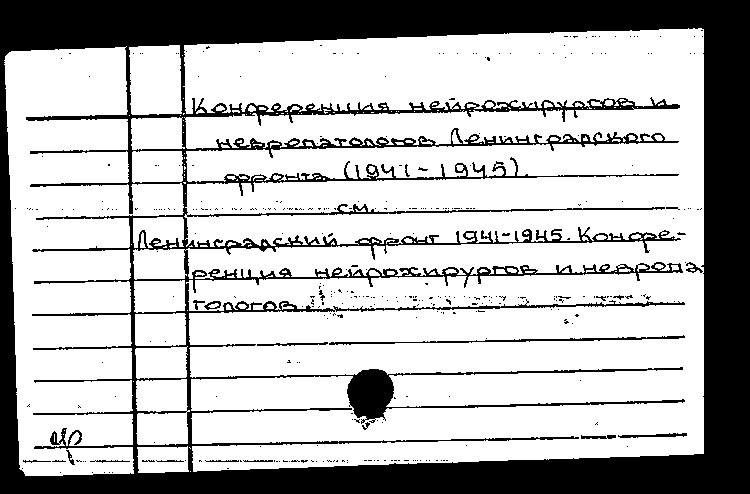 Конференция нейрохирургов и
невропатологов Ленинградского
фронта (1941-1945).
см.
Ленинградский фронт 1941-1945. Конфе-
ренция нейрохирургов и невропа
тологов.